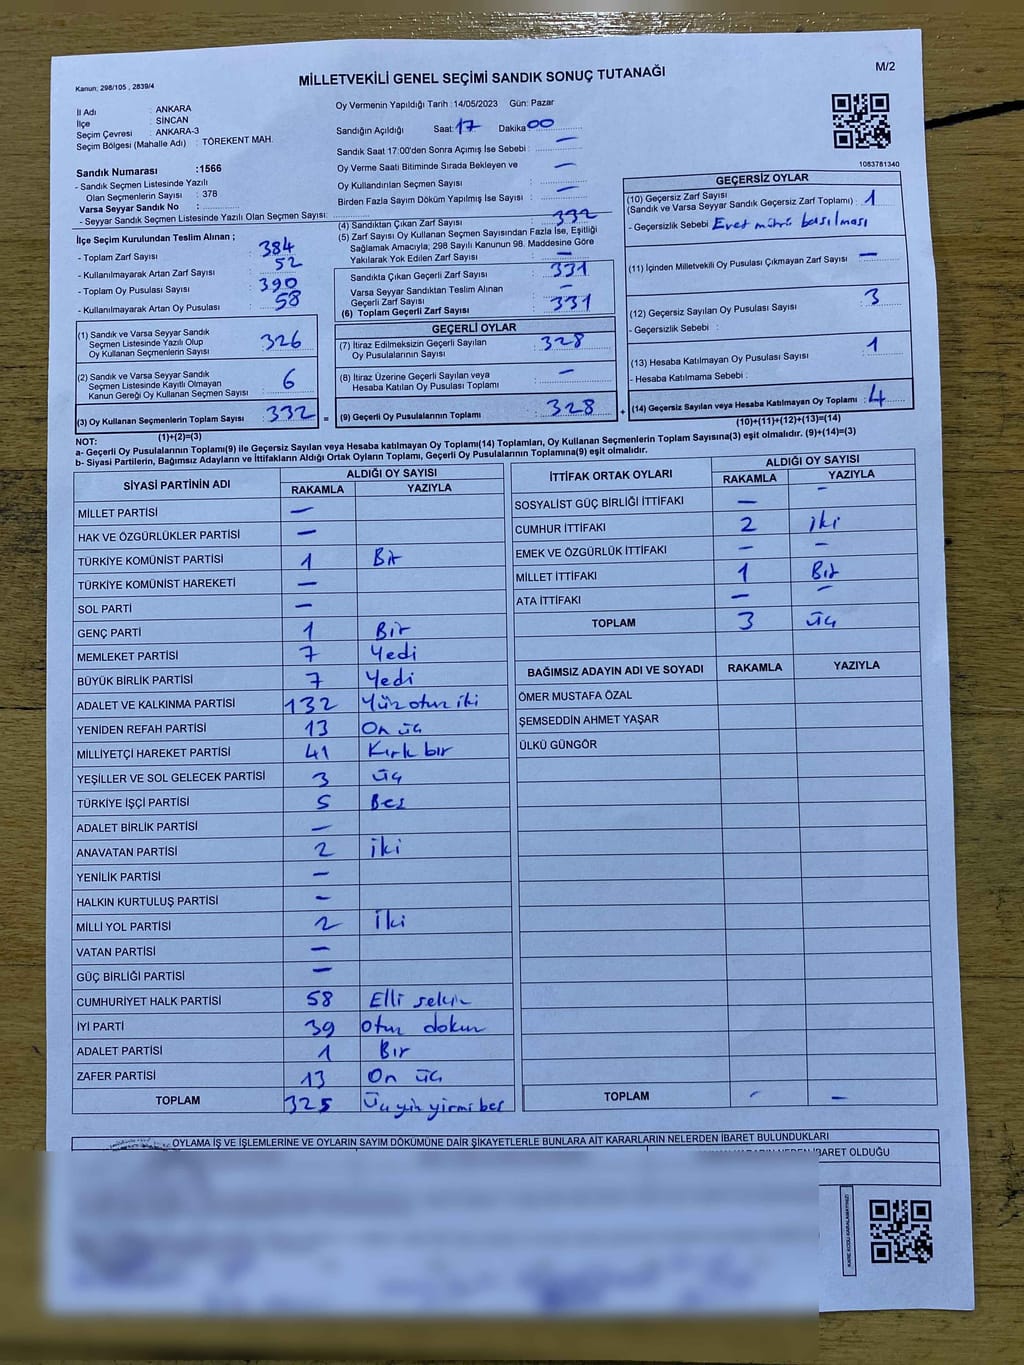 Kanun; 298/105 , 2839/4
MİLLETVEKİLİ GENEL SEÇİMİ SANDIK SONUÇ TUTANAĞI
M/2
İl Adı : ANKARA
İlçe : SİNCAN
Seçim Çevresi : ANKARA-3
Seçim Bölgesi (Mahalle Adı) : TÖREKENT MAH.
Oy Vermenin Yapıldığı Tarih :14/05/2023 Gün: Pazar
Sandığın Açıldığı Saat: 17 Dakika 00
Sandık Saat 17:00'den Sonra Açımış İse Sebebi : —
Oy Verme Saati Bitiminde Sırada Bekleyen ve
Oy Kullandırılan Seçmen Sayısı : —
Birden Fazla Sayım Döküm Yapılmış İse Sayısı : —
1083781340
Sandık Numarası :1566
- Sandık Seçmen Listesinde Yazılı
Olan Seçmenlerin Sayısı : 378
Varsa Seyyar Sandık No :
- Seyyar Sandık Seçmen Listesinde Yazılı Olan Seçmen Sayısı:
İlçe Seçim Kurulundan Teslim Alınan ;
- Toplam Zarf Sayısı 384
- Kullanılmayarak Artan Zarf Sayısı 52
- Toplam Oy Pusulası Sayısı 390
- Kullanılmayarak Artan Oy Pusulası 58
(1) Sandık ve Varsa Seyyar Sandık
Seçmen Listesinde Yazılı Olup
Oy Kullanan Seçmenlerin Sayısı 326
(2) Sandık ve Varsa Seyyar Sandık
Seçmen Listesinde Kayıtlı Olmayan
Kanun Gereği Oy Kullanan Seçmen Sayısı 6
(3) Oy Kullanan Seçmenlerin Toplam Sayısı 332 =
(1)+(2)=(3)
(4) Sandıktan Çıkan Zarf Sayısı 332
(5) Zarf Sayısı Oy Kullanan Seçmen Sayısından Fazla İse, Eşitliği
Sağlamak Amacıyla; 298 Sayılı Kanunun 98. Maddesine Göre
Yakılarak Yok Edilen Zarf Sayısı —
Sandıkta Çıkan Geçerli Zarf Sayısı 331
Varsa Seyyar Sandıktan Teslim Alınan
Geçerli Zarf Sayısı —
(6) Toplam Geçerli Zarf Sayısı 331
GEÇERLİ OYLAR
(7) İtiraz Edilmeksizin Geçerli Sayılan
Oy Pusulalarının Sayısı 328
(8) İtiraz Üzerine Geçerli Sayılan veya
Hesaba Katılan Oy Pusulası Toplamı —
(9) Geçerli Oy Pusulalarının Toplamı 328 +
GEÇERSİZ OYLAR
(10) Geçersiz Zarf Sayısı
(Sandık ve Varsa Seyyar Sandık Geçersiz Zarf Toplamı) : 1
- Geçersizlik Sebebi Evet mührü basılması
(11) İçinden Milletvekili Oy Pusulası Çıkmayan Zarf Sayısı —
(12) Geçersiz Sayılan Oy Pusulası Sayısı 3
- Geçersizlik Sebebi :
(13) Hesaba Katılmayan Oy Pusulası Sayısı 1
- Hesaba Katılmama Sebebi :
(14) Geçersiz Sayılan veya Hesaba Katılmayan Oy Toplamı : 4
(10)+(11)+(12)+(13)=(14)
NOT:
a- Geçerli Oy Pusulalarının Toplamı(9) ile Geçersiz Sayılan veya Hesaba katılmayan Oy Toplamı(14) Toplamları, Oy Kullanan Seçmenlerin Toplam Sayısına(3) eşit olmalıdır. (9)+(14)=(3)
b- Siyasi Partilerin, Bağımsız Adayların ve İttifakların Aldığı Ortak Oyların Toplamı, Geçerli Oy Pusulalarının Toplamına(9) eşit olmalıdır.
SİYASİ PARTİNİN ADI ALDIĞI OY SAYISI
RAKAMLA YAZIYLA
MİLLET PARTİSİ —
HAK VE ÖZGÜRLÜKLER PARTİSİ —
TÜRKİYE KOMÜNİST PARTİSİ 1 Bir
TÜRKİYE KOMÜNİST HAREKETİ —
SOL PARTİ —
GENÇ PARTİ 1 Bir
MEMLEKET PARTİSİ 7 Yedi
BÜYÜK BİRLİK PARTİSİ 7 Yedi
ADALET VE KALKINMA PARTİSİ 132 Yüz otuz iki
YENİDEN REFAH PARTİSİ 13 On üç
MİLLİYETÇİ HAREKET PARTİSİ 41 Kırk bir
YEŞİLLER VE SOL GELECEK PARTİSİ 3 üç
TÜRKİYE İŞÇİ PARTİSİ 5 Beş
ADALET BİRLİK PARTİSİ —
ANAVATAN PARTİSİ 2 iki
YENİLİK PARTİSİ —
HALKIN KURTULUŞ PARTİSİ —
MİLLİ YOL PARTİSİ 2 İki
VATAN PARTİSİ —
GÜÇ BİRLİĞİ PARTİSİ —
CUMHURİYET HALK PARTİSİ 58 Elli sekiz
İYİ PARTİ 39 Otuz dokuz
ADALET PARTİSİ 1 Bir
ZAFER PARTİSİ 13 On üç
TOPLAM 325 Üçyüz yirmi beş
İTTİFAK ORTAK OYLARI ALDIĞI OY SAYISI
RAKAMLA YAZIYLA
SOSYALİST GÜÇ BİRLİĞİ İTTİFAKI — —
CUMHUR İTTİFAKI 2 iki
EMEK VE ÖZGÜRLÜK İTTİFAKI — —
MİLLET İTTİFAKI 1 Bir
ATA İTTİFAKI — —
TOPLAM 3 üç
BAĞIMSIZ ADAYIN ADI VE SOYADI RAKAMLA YAZIYLA
ÖMER MUSTAFA ÖZAL
ŞEMSEDDİN AHMET YAŞAR
ÜLKÜ GÜNGÖR
TOPLAM - —
OYLAMA İŞ VE İŞLEMLERİNE VE OYLARIN SAYIM DÖKÜMÜNE DAİR ŞİKAYETLERLE BUNLARA AİT KARARLARIN NELERDEN İBARET BULUNDUKLARI
İBARET OLDUĞU
KARE KODU KARALAMAYINIZ!